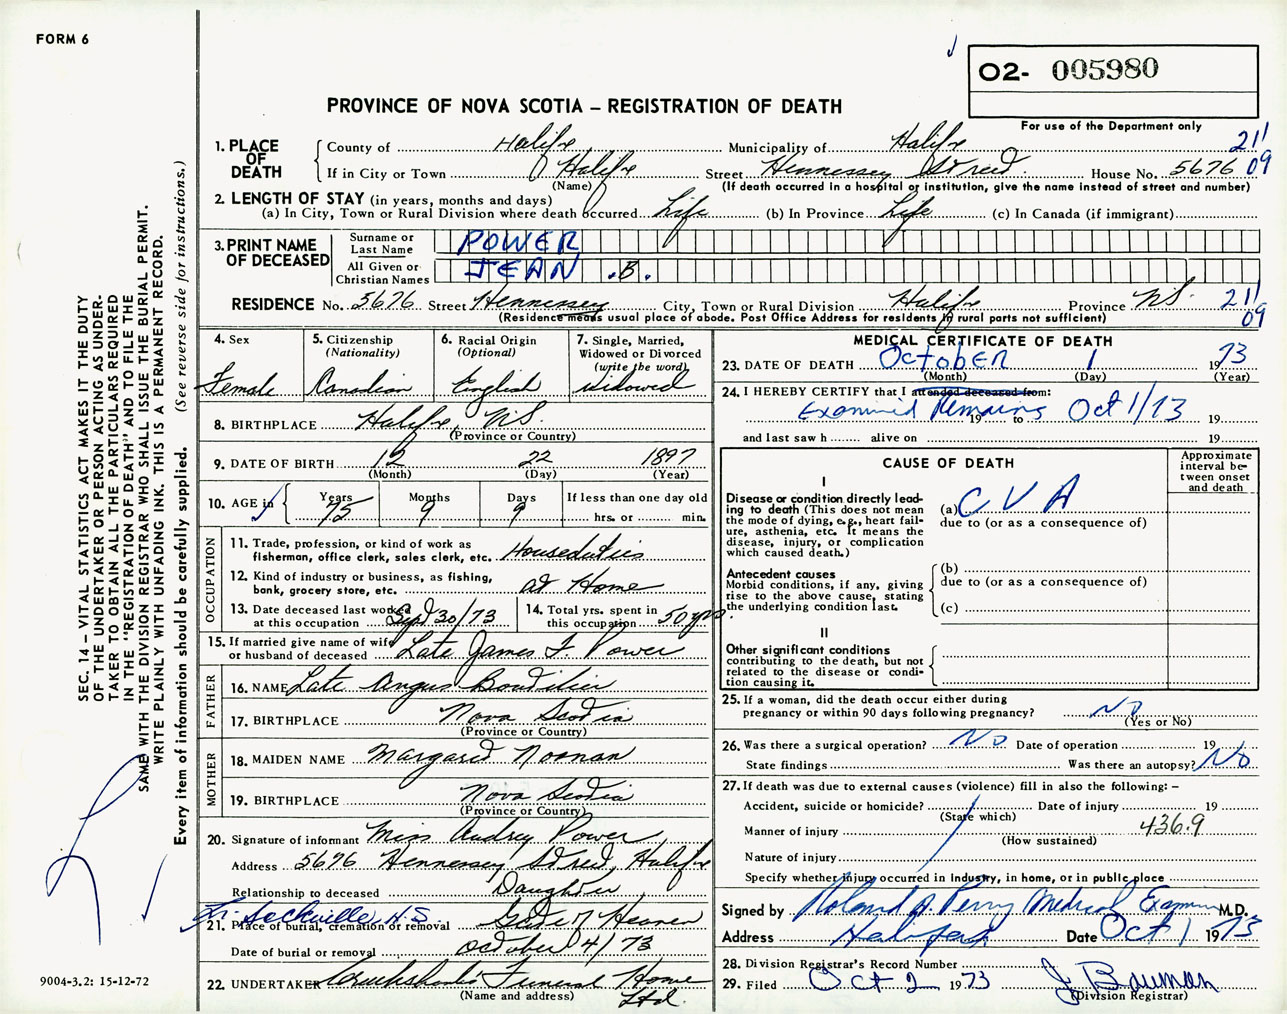 FORM 6
O2- 005980
PROVINCE OF NOVA SCOTIA – REGISTRATION OF DEATH
For use of the Department only
1. PLACE OF DEATH
County of Halifx Municipality of Halifx 211
If in City or Town Halifx Street Hennessey Street House No. 5676 09
(Name) (If death occurred in a hospital or institution, give the name instead of street and number)
2. LENGTH OF STAY (in years, months and days)
(a) In City, Town or Rural Division where death occurred Life (b) In Province Life (c) In Canada (if immigrant)
3. PRINT NAME OF DECEASED
Surname or Last Name POWER
All Given or Christian Names JEAN .B.
RESIDENCE No. 5676 Street Hennessey City, Town or Rural Division Halifx Province NS. 211
(Residence means usual place of abode. Post Office Address for residents in rural parts not sufficient) 09
4. Sex
Female
5. Citizenship
(Nationality)
Canadian
6. Racial Origin
(Optional)
English
7. Single, Married,
Widowed or Divorced
(write the word)
Widowed
8. BIRTHPLACE Halifx, NS.
(Province or Country)
9. DATE OF BIRTH 12 22 1897
(Month) (Day) (Year)
10. AGE in Years Months Days If less than one day old
75 9 9 hrs. or min.
OCCUPATION
11. Trade, profession, or kind of work as
fisherman, office clerk, sales clerk, etc. Houseduties
12. Kind of industry or business, as fishing,
bank, grocery store, etc. at Home
13. Date deceased last worked
at this occupation Sept 30/73
14. Total yrs. spent in
this occupation 50 yrs.
15. If married give name of wife
or husband of deceased Late James F. Power
FATHER
16. NAME Late Angus Boutilier
17. BIRTHPLACE Nova Scotia
(Province or Country)
MOTHER
18. MAIDEN NAME Margaret Noonan
19. BIRTHPLACE Nova Scotia
(Province or Country)
20. Signature of informant Miss Audrey Power
Address 5676 Hennessey Street, Halifx
Relationship to deceased Daughter
Sackville, N.S.
21. Place of burial, cremation or removal Gate of Heaven
Date of burial or removal October 4/73
22. UNDERTAKER Cruikshanks Funeral Home
(Name and address) Ltd.
MEDICAL CERTIFICATE OF DEATH
23. DATE OF DEATH OCTOBER 1 1973
(Month) (Day) (Year)
24. I HEREBY CERTIFY that I attended deceased from:
Examined Remains 19 to Oct 1/73 19
and last saw h alive on 19
CAUSE OF DEATH
Approximate interval between onset and death
I
Disease or condition directly leading to death (This does not mean the mode of dying, e.g., heart failure, asthenia, etc. It means the disease, injury, or complication which caused death.)
(a) CVA
due to (or as a consequence of)
Antecedent causes
Morbid conditions, if any, giving rise to the above cause, stating the underlying condition last.
(b)
due to (or as a consequence of)
(c)
II
Other significant conditions
contributing to the death, but not related to the disease or condition causing it.
25. If a woman, did the death occur either during
pregnancy or within 90 days following pregnancy? NO
(Yes or No)
26. Was there a surgical operation? No Date of operation 19
State findings Was there an autopsy? No
27. If death was due to external causes (violence) fill in also the following: –
Accident, suicide or homicide? Date of injury 19
(State which)
Manner of injury 436.9
(How sustained)
Nature of injury
Specify whether injury occurred in Industry, in home, or in public place
Signed by Roland A. Perry Medical Examiner M.D.
Address Halifax Date Oct 1 1973
28. Division Registrar's Record Number
29. Filed Oct 2 1973 J Bauman
(Division Registrar)
SEC. 14 – VITAL STATISTICS ACT MAKES IT THE DUTY
OF THE UNDERTAKER OR PERSON ACTING AS UNDER-
TAKER TO OBTAIN ALL THE PARTICULARS REQUIRED
IN THE "REGISTRATION OF DEATH" AND TO FILE THE
SAME WITH THE DIVISION REGISTRAR WHO SHALL ISSUE THE BURIAL PERMIT.
WRITE PLAINLY WITH UNFADING INK. THIS IS A PERMANENT RECORD.
Every item of information should be carefully supplied. (See reverse side for instructions.)
9004-3.2: 15-12-72